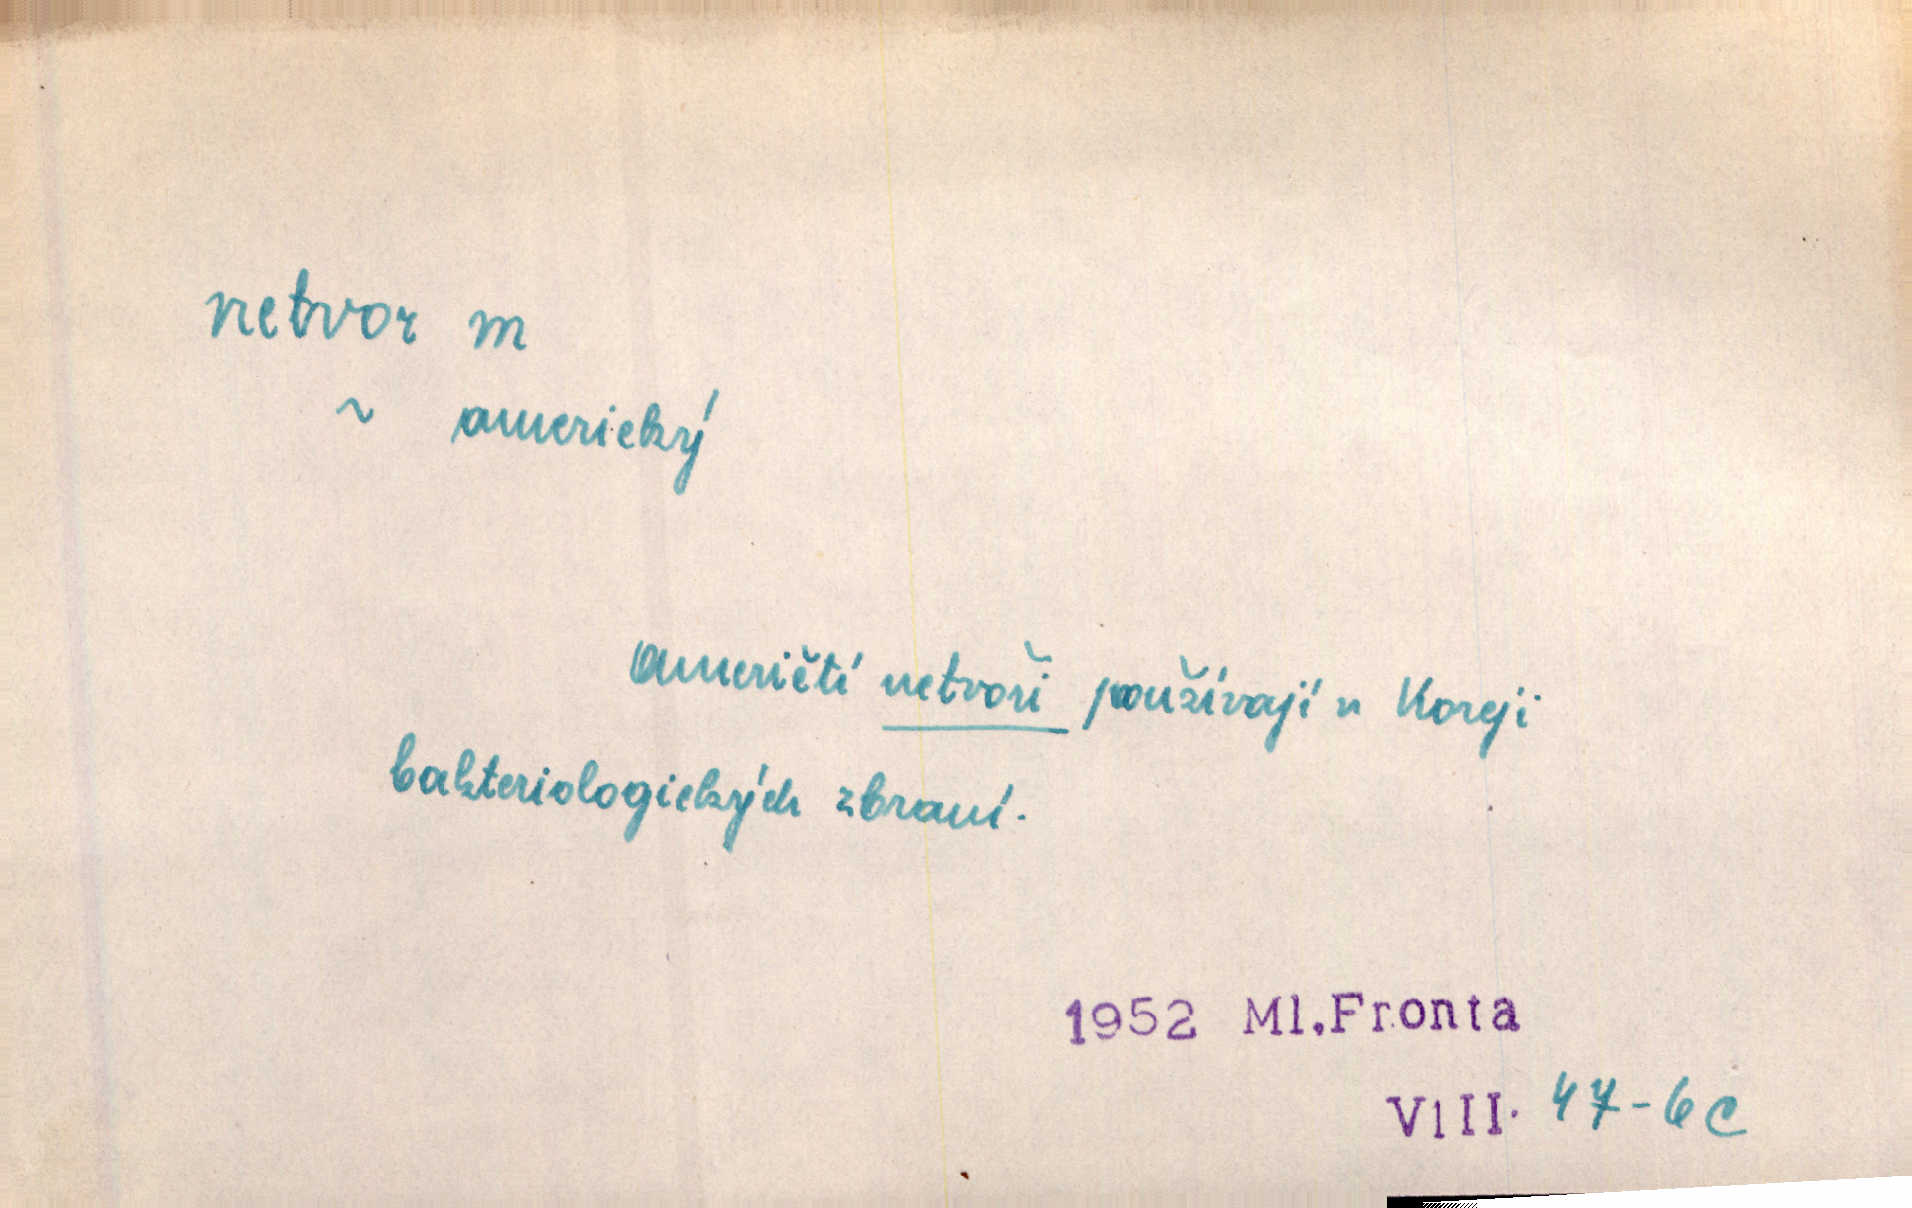 netvor m
~ americký
američtí netvoři používají v Koreji
bakteriologických zbraní.
1952 Ml.Fronta
VIII. 47-6c